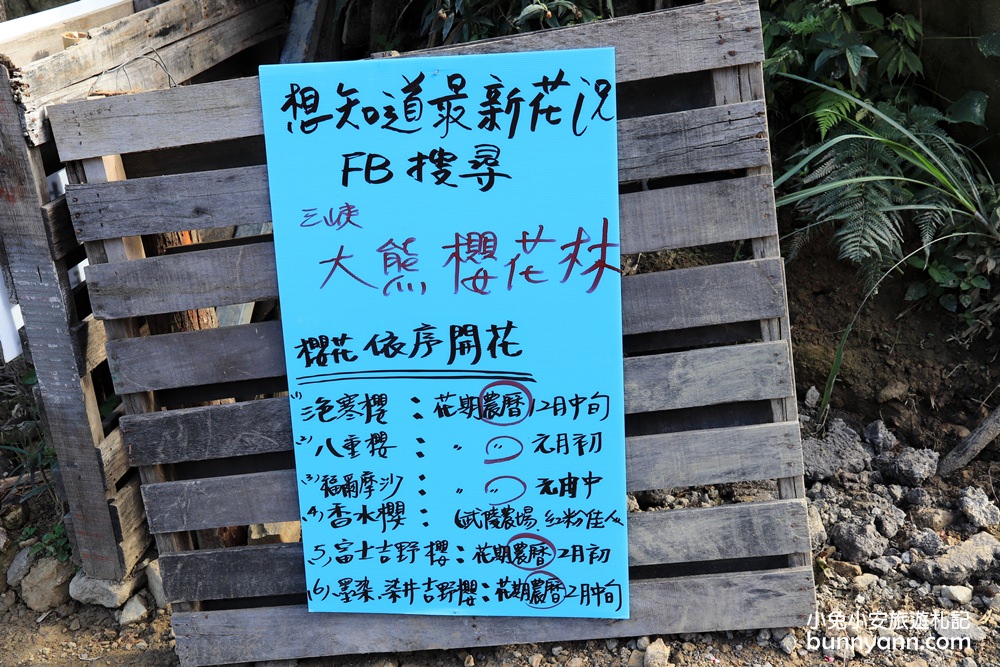 想知道最新花況
FB搜尋
三峽
大熊櫻花林
櫻花依序開花
(1) 絕寒櫻：花期農曆12月中旬
(2) 八重櫻：〃 〃 元月初
(3) 福爾摩沙：〃 〃 元月中
(4) 香水櫻：(武陵農場、紅粉佳人)
5, 富士吉野櫻：花期農曆2月初
(6) 墨染、染井吉野櫻：花期農曆2月中旬
小兔小安旅遊札記
bunnyann.com